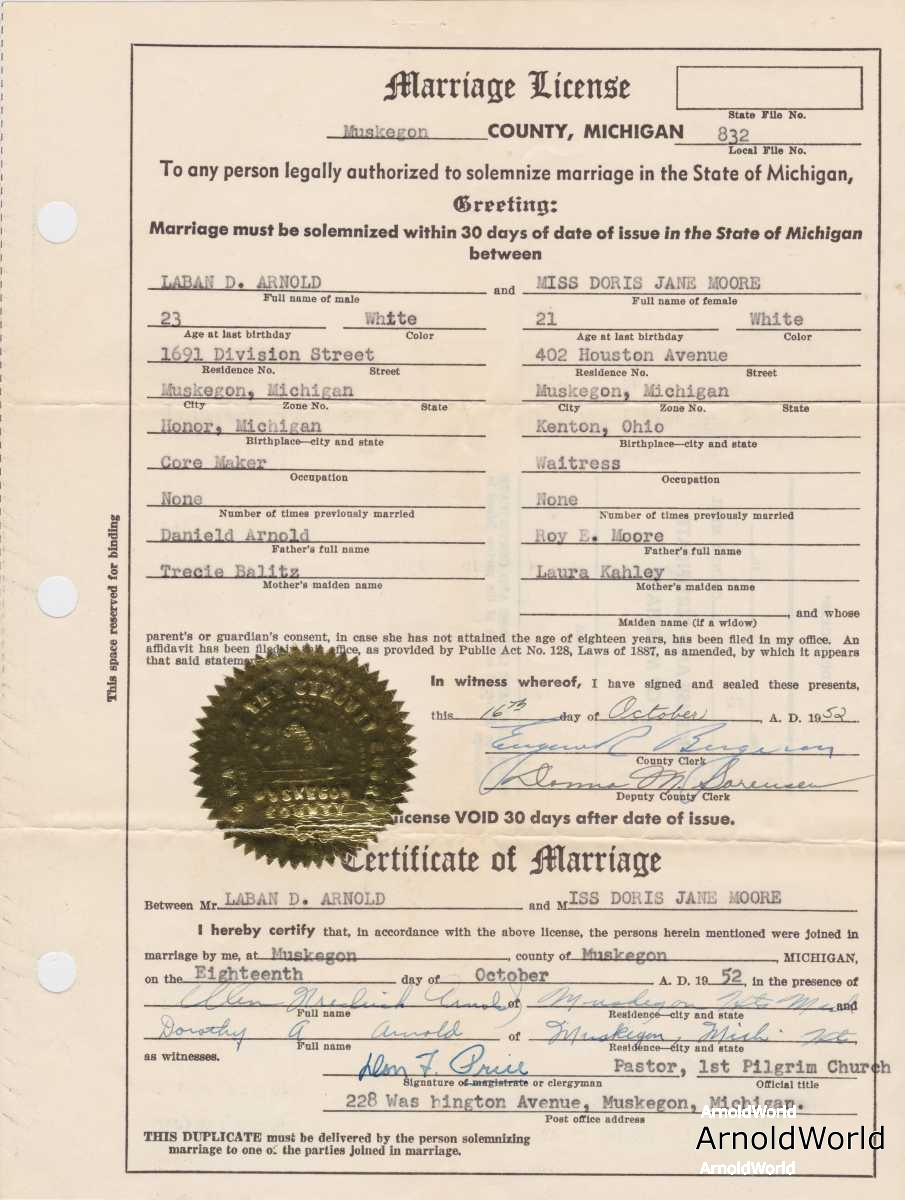 Marriage License
State File No.
Muskegon COUNTY, MICHIGAN 832
Local File No.
To any person legally authorized to solemnize marriage in the State of Michigan,
Greeting:
Marriage must be solemnized within 30 days of date of issue in the State of Michigan
between
LABAN D. ARNOLD and MISS DORIS JANE MOORE
Full name of male Full name of female
23 White 21 White
Age at last birthday Color Age at last birthday Color
1691 Division Street 402 Houston Avenue
Residence No. Street Residence No. Street
Muskegon, Michigan Muskegon, Michigan
City Zone No. State City Zone No. State
Honor, Michigan Kenton, Ohio
Birthplace—city and state Birthplace—city and state
Core Maker Waitress
Occupation Occupation
None None
Number of times previously married Number of times previously married
Danield Arnold Roy E. Moore
Father's full name Father's full name
Trecie Balitz Laura Kahley
Mother's maiden name Mother's maiden name
, and whose
Maiden name (if a widow)
parent's or guardian's consent, in case she has not attained the age of eighteen years, has been filed in my office. An
affidavit has been filed in this office, as provided by Public Act No. 128, Laws of 1887, as amended, by which it appears
that said
In witness whereof, I have signed and sealed these presents,
this 16th day of October, A. D. 1952
Eugene R Bergeron
County Clerk
Donna M. Sorensen
Deputy County Clerk
MUSKEGON
COUNTY
license VOID 30 days after date of issue.
Certificate of Marriage
Between Mr. LABAN D. ARNOLD and MISS DORIS JANE MOORE
I hereby certify that, in accordance with the above license, the persons herein mentioned were joined in
marriage by me, at Muskegon, county of Muskegon, MICHIGAN,
on the Eighteenth day of October A. D. 1952, in the presence of
Arnold of Muskegon Hts Mich and
Full name Residence—city and state
Dorothy A Arnold of Muskegon, Mich Hts
Full name Residence—city and state
as witnesses.
Don F. Price Pastor, 1st Pilgrim Church
Signature of magistrate or clergyman Official title
228 Was hington Avenue, Muskegon, Michigan.
Post office address
THIS DUPLICATE must be delivered by the person solemnizing
marriage to one of the parties joined in marriage.
This space reserved for binding
ArnoldWorld
ArnoldWorld
ArnoldWorld